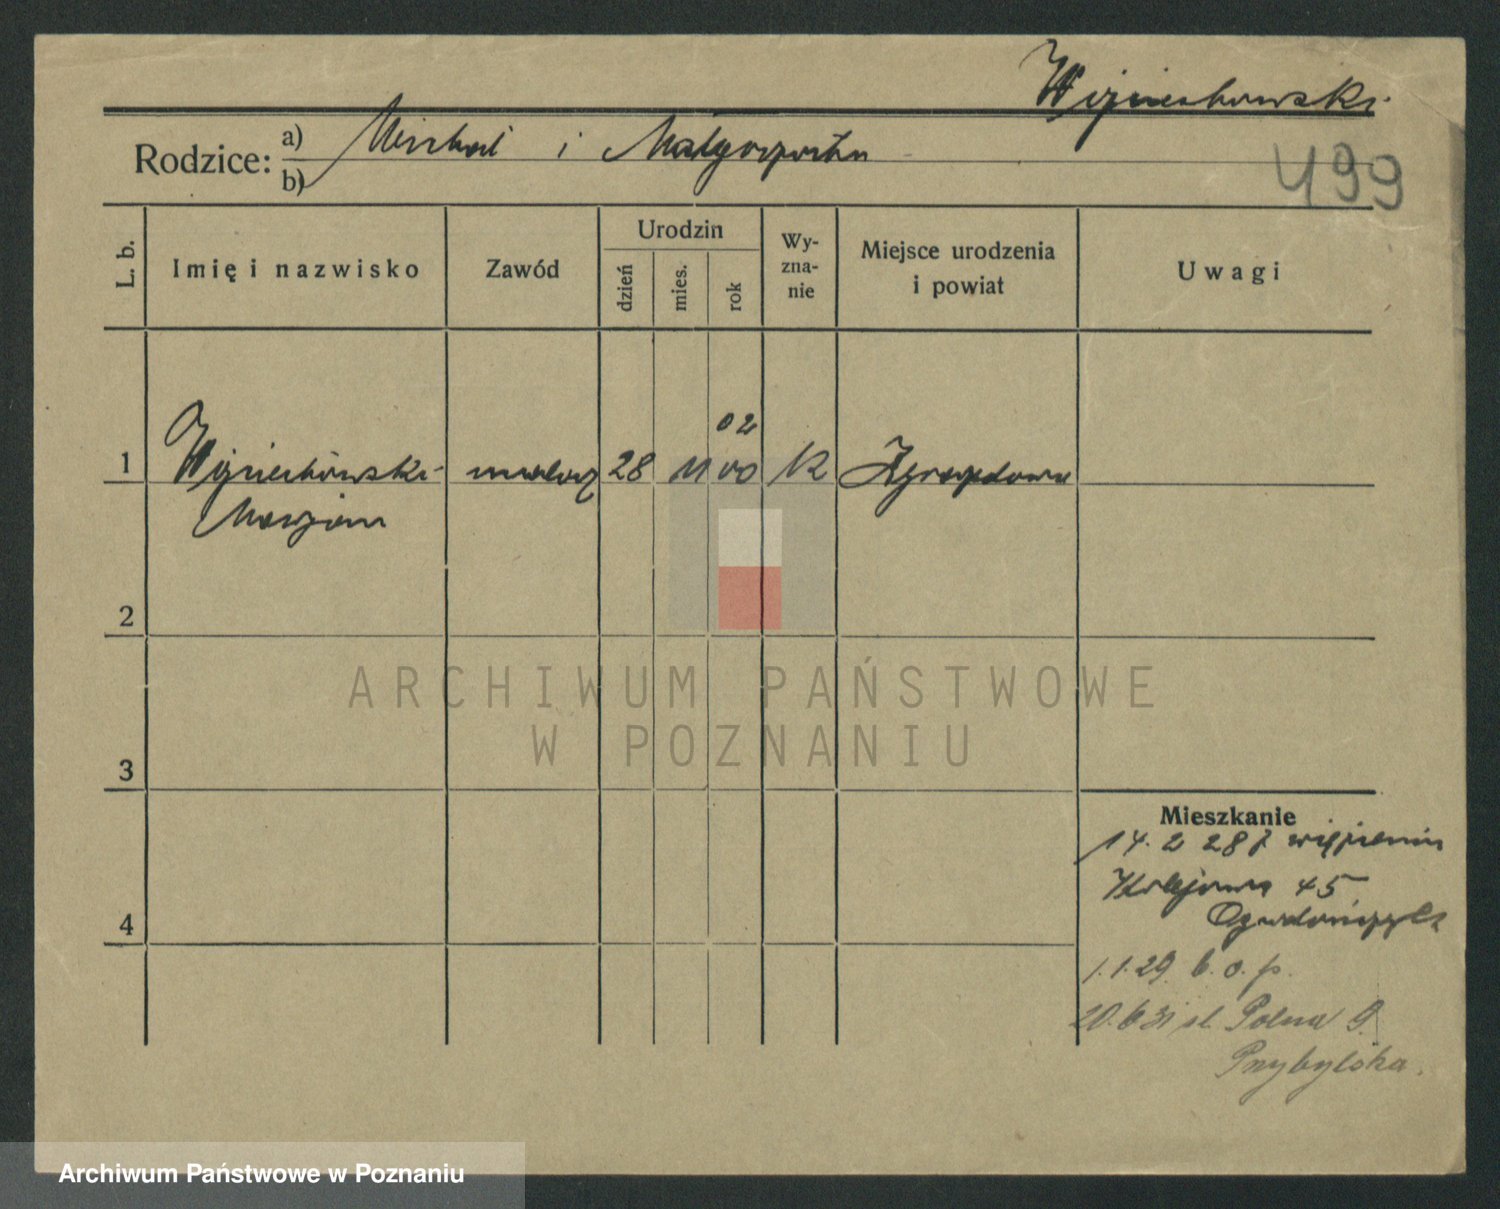 Wojciechowski
Rodzice: a) Michał i Małgorzata
b)
499
L. b.
Imię i nazwisko
Zawód
Urodzin
dzień
mies.
rok
Wy-
zna-
nie
Miejsce urodzenia
i powiat
Uwagi
02
1 Wojciechowski malarz 28 11 00 K
Marjan
2
ARCHIWUM PAŃSTWOWE
W POZNANIU
3
Mieszkanie
14. 2 28 z więzienia
Kolejowa 45
4
1.1.29 b. o. p.
20.6 31 ul. Polna 9.
Przybylska.
Archiwum Państwowe w Poznaniu